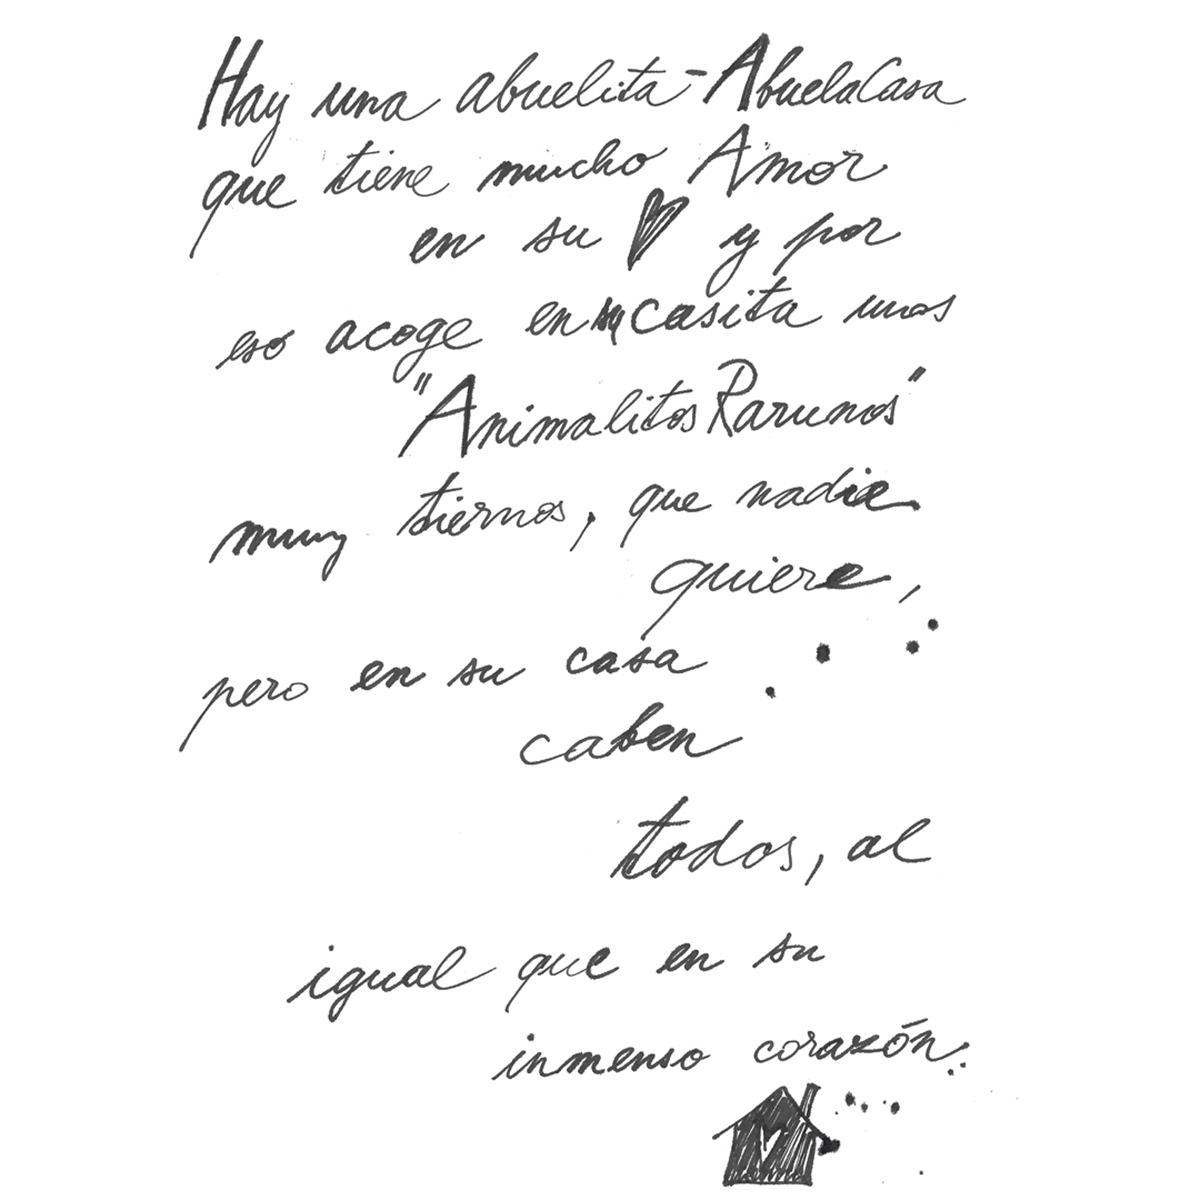 Hay una abuelita - AbuelaCasa
que tiene mucho Amor
en su ♥ y por
eso acoge en su casita unos
"Animalitos Rarunos"
muy tiernos, que nadie
quiere,
pero en su casa
caben
todos, al
igual que en su
inmenso corazón.